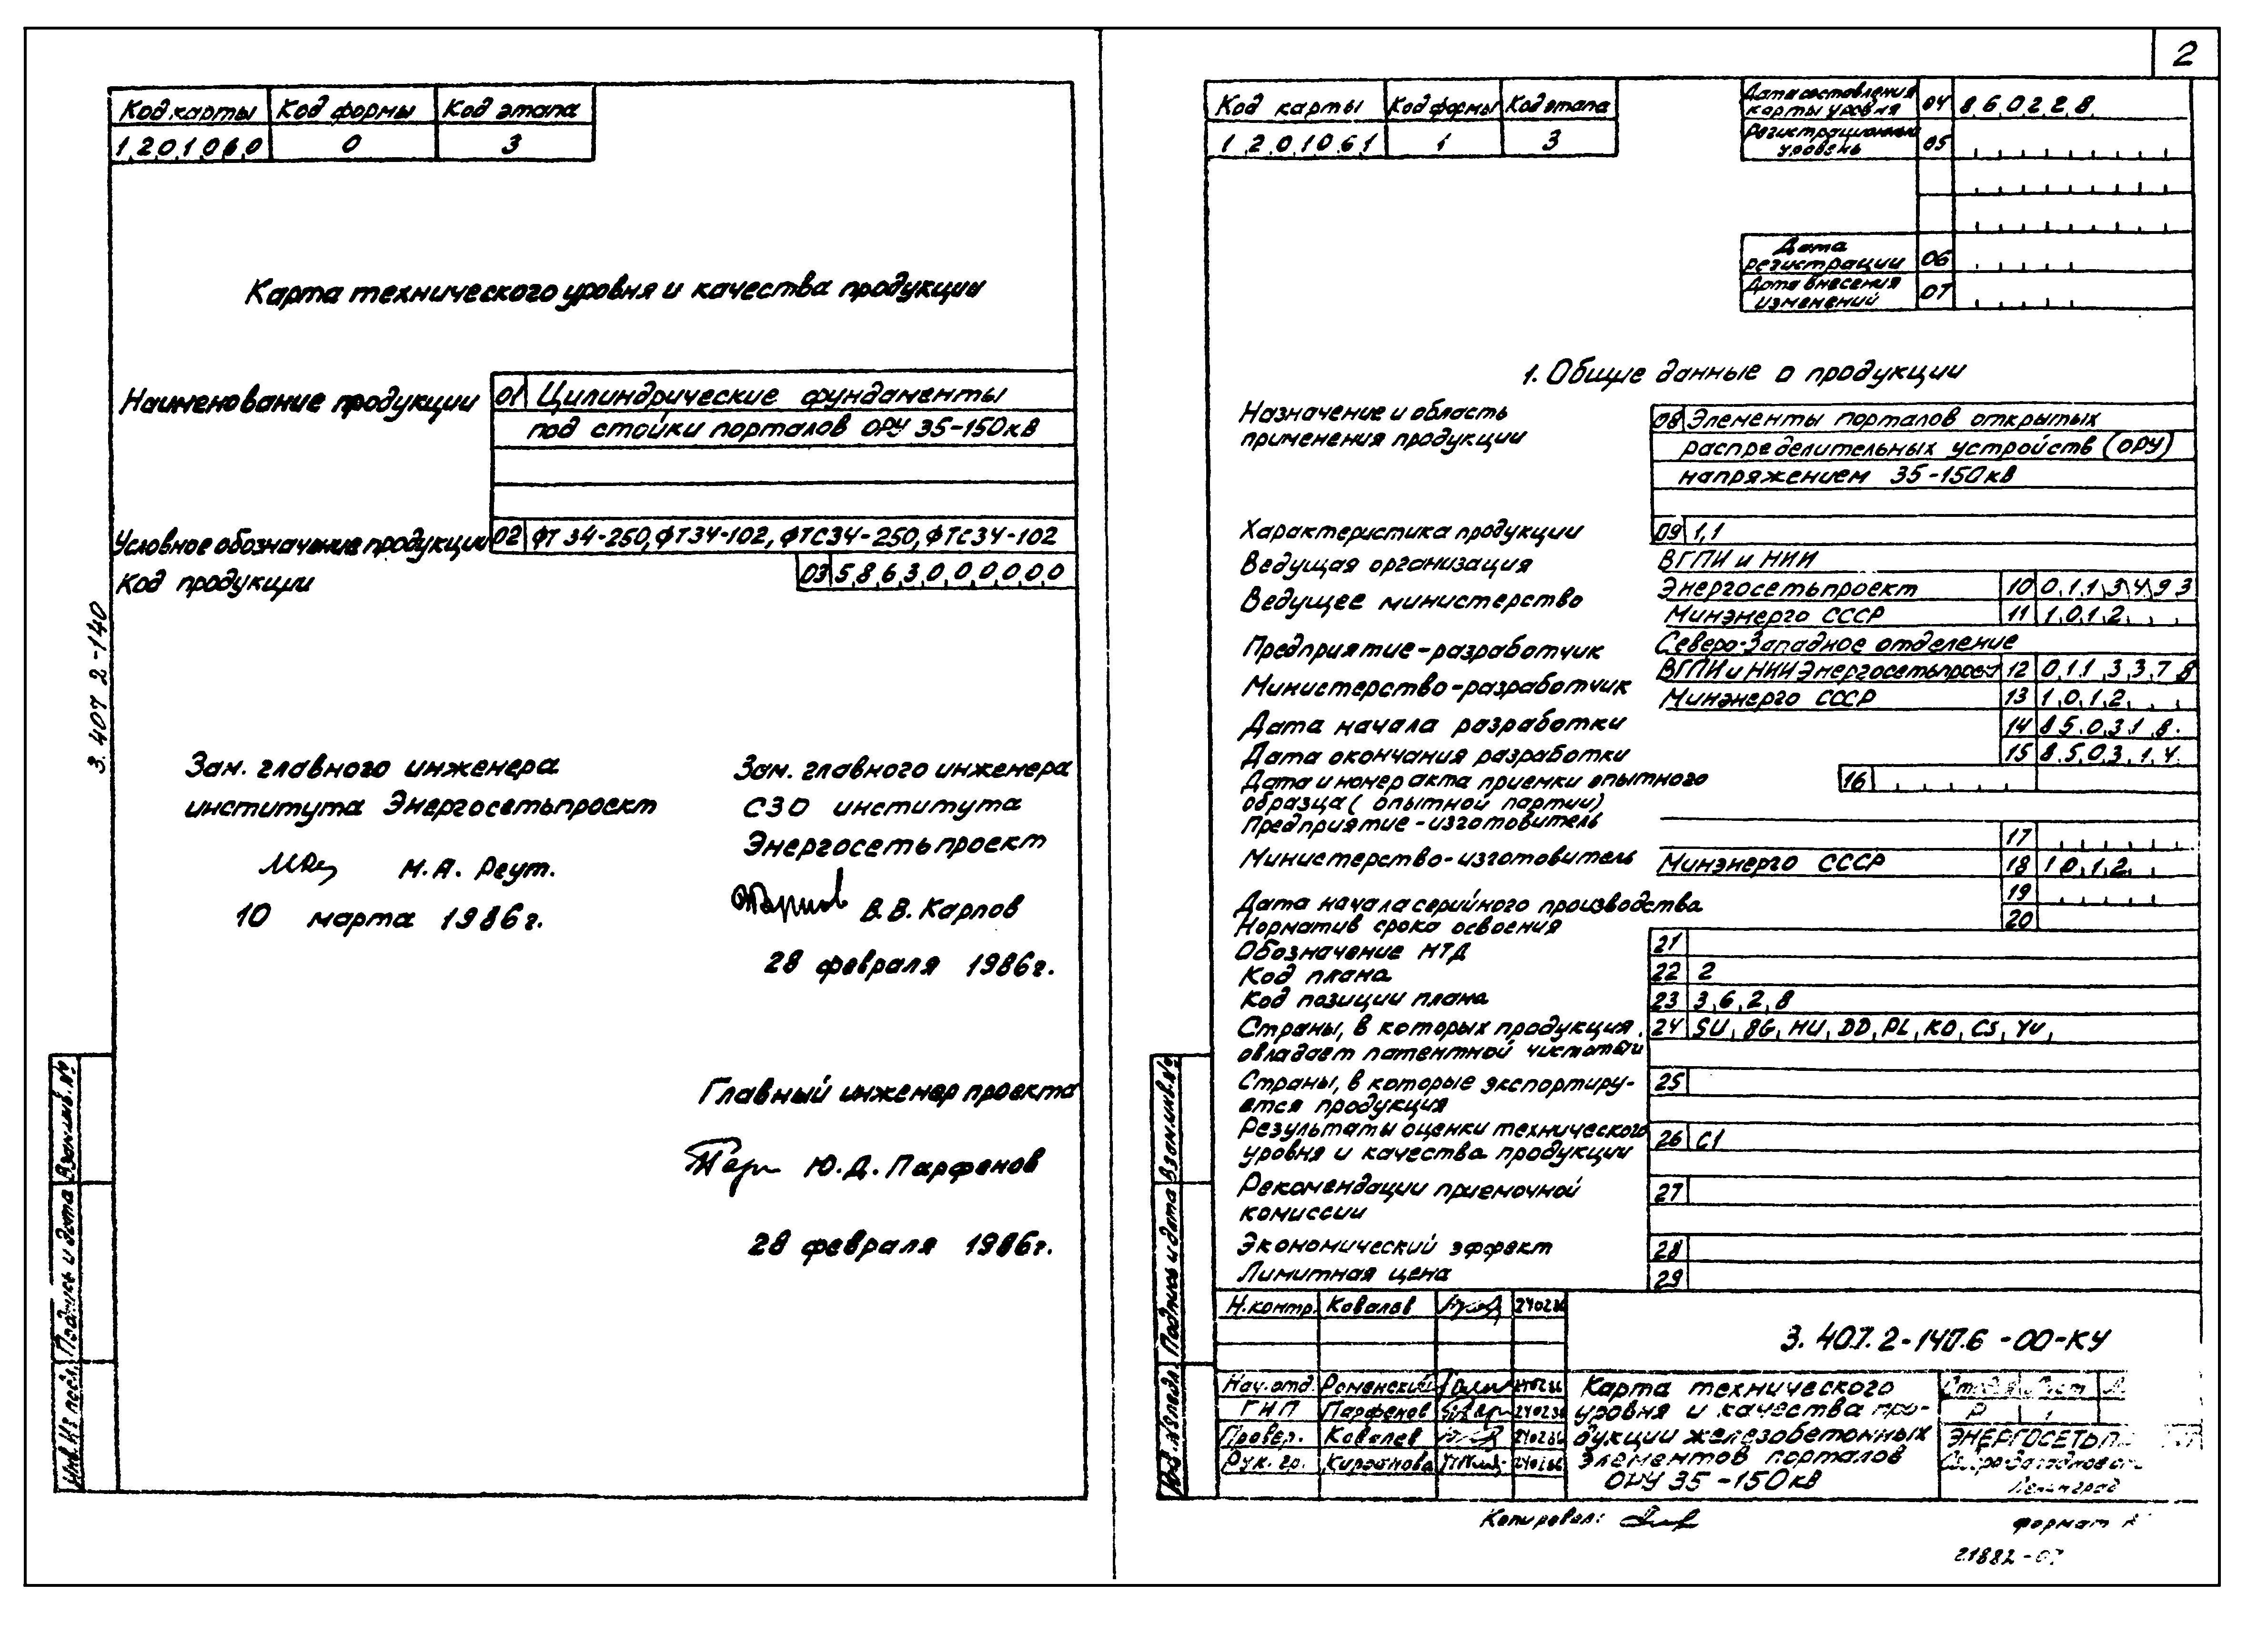 2
Код карты Код формы Код этапа
1,2,0,1,0,6,0 0 3
Карта технического уровня и качества продукции
Наименование продукции 01 Цилиндрические фундаменты
под стойки порталов ОРУ 35-150кВ
Условное обозначение продукции 02 ФТ34-250, ФТ34-102, ФТС34-250, ФТС34-102
Код продукции 03 5,8,6,3,0,0,0,0,0,0
3.407 2-140
Зам. главного инженера
института Энергосетьпроект
М.А. Реут.
10 марта 1986г.
Зам. главного инженера
СЗО института
Энергосетьпроект
В.В. Карпов
28 февраля 1986г.
Главный инженер проекта
Ю.Д. Парфенов
28 февраля 1986г.
Инв. № подл. Подпись и дата Взам.инв.№
Код карты Код формы Код этапа
1,2,0,1,0,6,1 1 3
Дата составления
карты уровня 04 8,6,0,2,2,8
Регистрационный
уровень 05
Дата
регистрации 06
Дата внесения
изменений 07
1. Общие данные о продукции
Назначение и область
применения продукции
08 Элементы порталов открытых
распределительных устройств (ОРУ)
напряжением 35-150кВ
Характеристика продукции 09 1,1
Ведущая организация ВГПИ и НИИ
Энергосетьпроект 10 0,1,1,3,4,9,3
Ведущее министерство Минэнерго СССР 11 1,0,1,2
Предприятие-разработчик Северо-Западное отделение
ВГПИ и НИИ Энергосетьпроект 12 0,1,1,3,3,7,8
Министерство-разработчик Минэнерго СССР 13 1,0,1,2
Дата начала разработки 14 8,5,0,3,1,8
Дата окончания разработки 15 8,5,0,3,1,4
Дата и номер акта приемки опытного 16
образца (опытной партии)
Предприятие-изготовитель 17
Министерство-изготовитель Минэнерго СССР 18 1,0,1,2
Дата начала серийного производства 19
Норматив срока освоения 20
Обозначение НТД 21
Код плана 22 2
Код позиции плана 23 3,6,2,8
Страны, в которых продукция 24 SU, BG, HU, DD, PL, KO, CS, YU,
обладает патентной чистотой
Страны, в которые экспортиру- 25
ется продукция
Результаты оценки технического 26 С1
уровня и качества продукции
Рекомендации приемочной 27
комиссии
Экономический эффект 28
Лимитная цена 29
Н.контр. Ковалев 240286
3.407.2-140.6-00-КУ
Нач.отд. Роменский
ГИП Парфенов 240286
Провер. Ковалев 240286
Рук. гр. 240286
Карта технического
уровня и качества про-
дукции железобетонных
элементов порталов
ОРУ 35-150кВ
Стадия Лист
Р 1
Ленинград
Инв. № подл. Подпись и дата Взам.инв.№
Копировал:
формат
21882-07